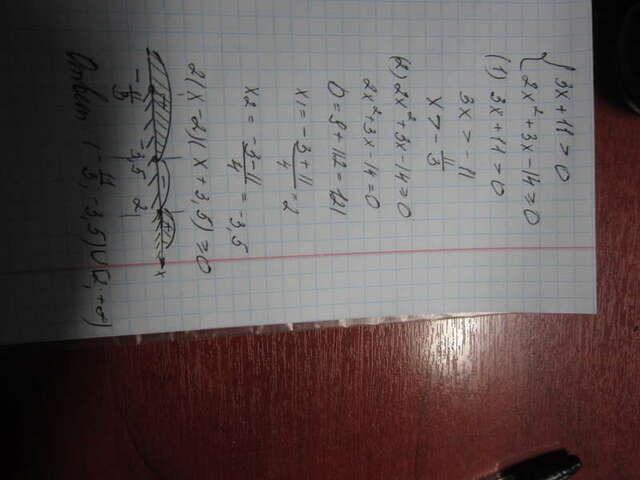 3x + 11 > 0
2x² + 3x - 14 ≥ 0
(1) 3x + 11 > 0
3x > -11
x > - 11/3
(2) 2x² + 3x - 14 ≥ 0
2x² + 3x - 14 = 0
D = 9 + 112 = 121
x₁ = (-3 + 11)/4 = 2
x₂ = (-3 - 11)/4 = -3,5
2(x - 2)(x + 3,5) ≥ 0
+ - + x
- 11/3 -3,5 2
Ответ: (- 11/3, -3,5) ∪ [2, +∞)